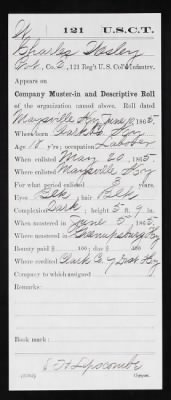 W | 121 | U.S.C.T.
Charles Wesley
Pvt., Co. D, 121 Reg't U. S. Col'd Infantry.
Appears on
Company Muster-in and Descriptive Roll
of the organization named above. Roll dated
Maysville Ky June 10, 1865.
Where born Clark Co. Ky
Age 18 y'rs; occupation Laborer
When enlisted May 20, 1865.
Where enlisted Maysville Ky
For what period enlisted 3 years.
Eyes Blk; hair Blk
Complexion Dark; height 5 ft. 9 in.
When mustered in June 5, 1865.
Where mustered in Ky
Bounty paid $ 100; due $ 100
Where credited Clark Co. 7 Dist Ky
Company to which assigned
Remarks:
Book mark:
Lipscomb
Copyist.